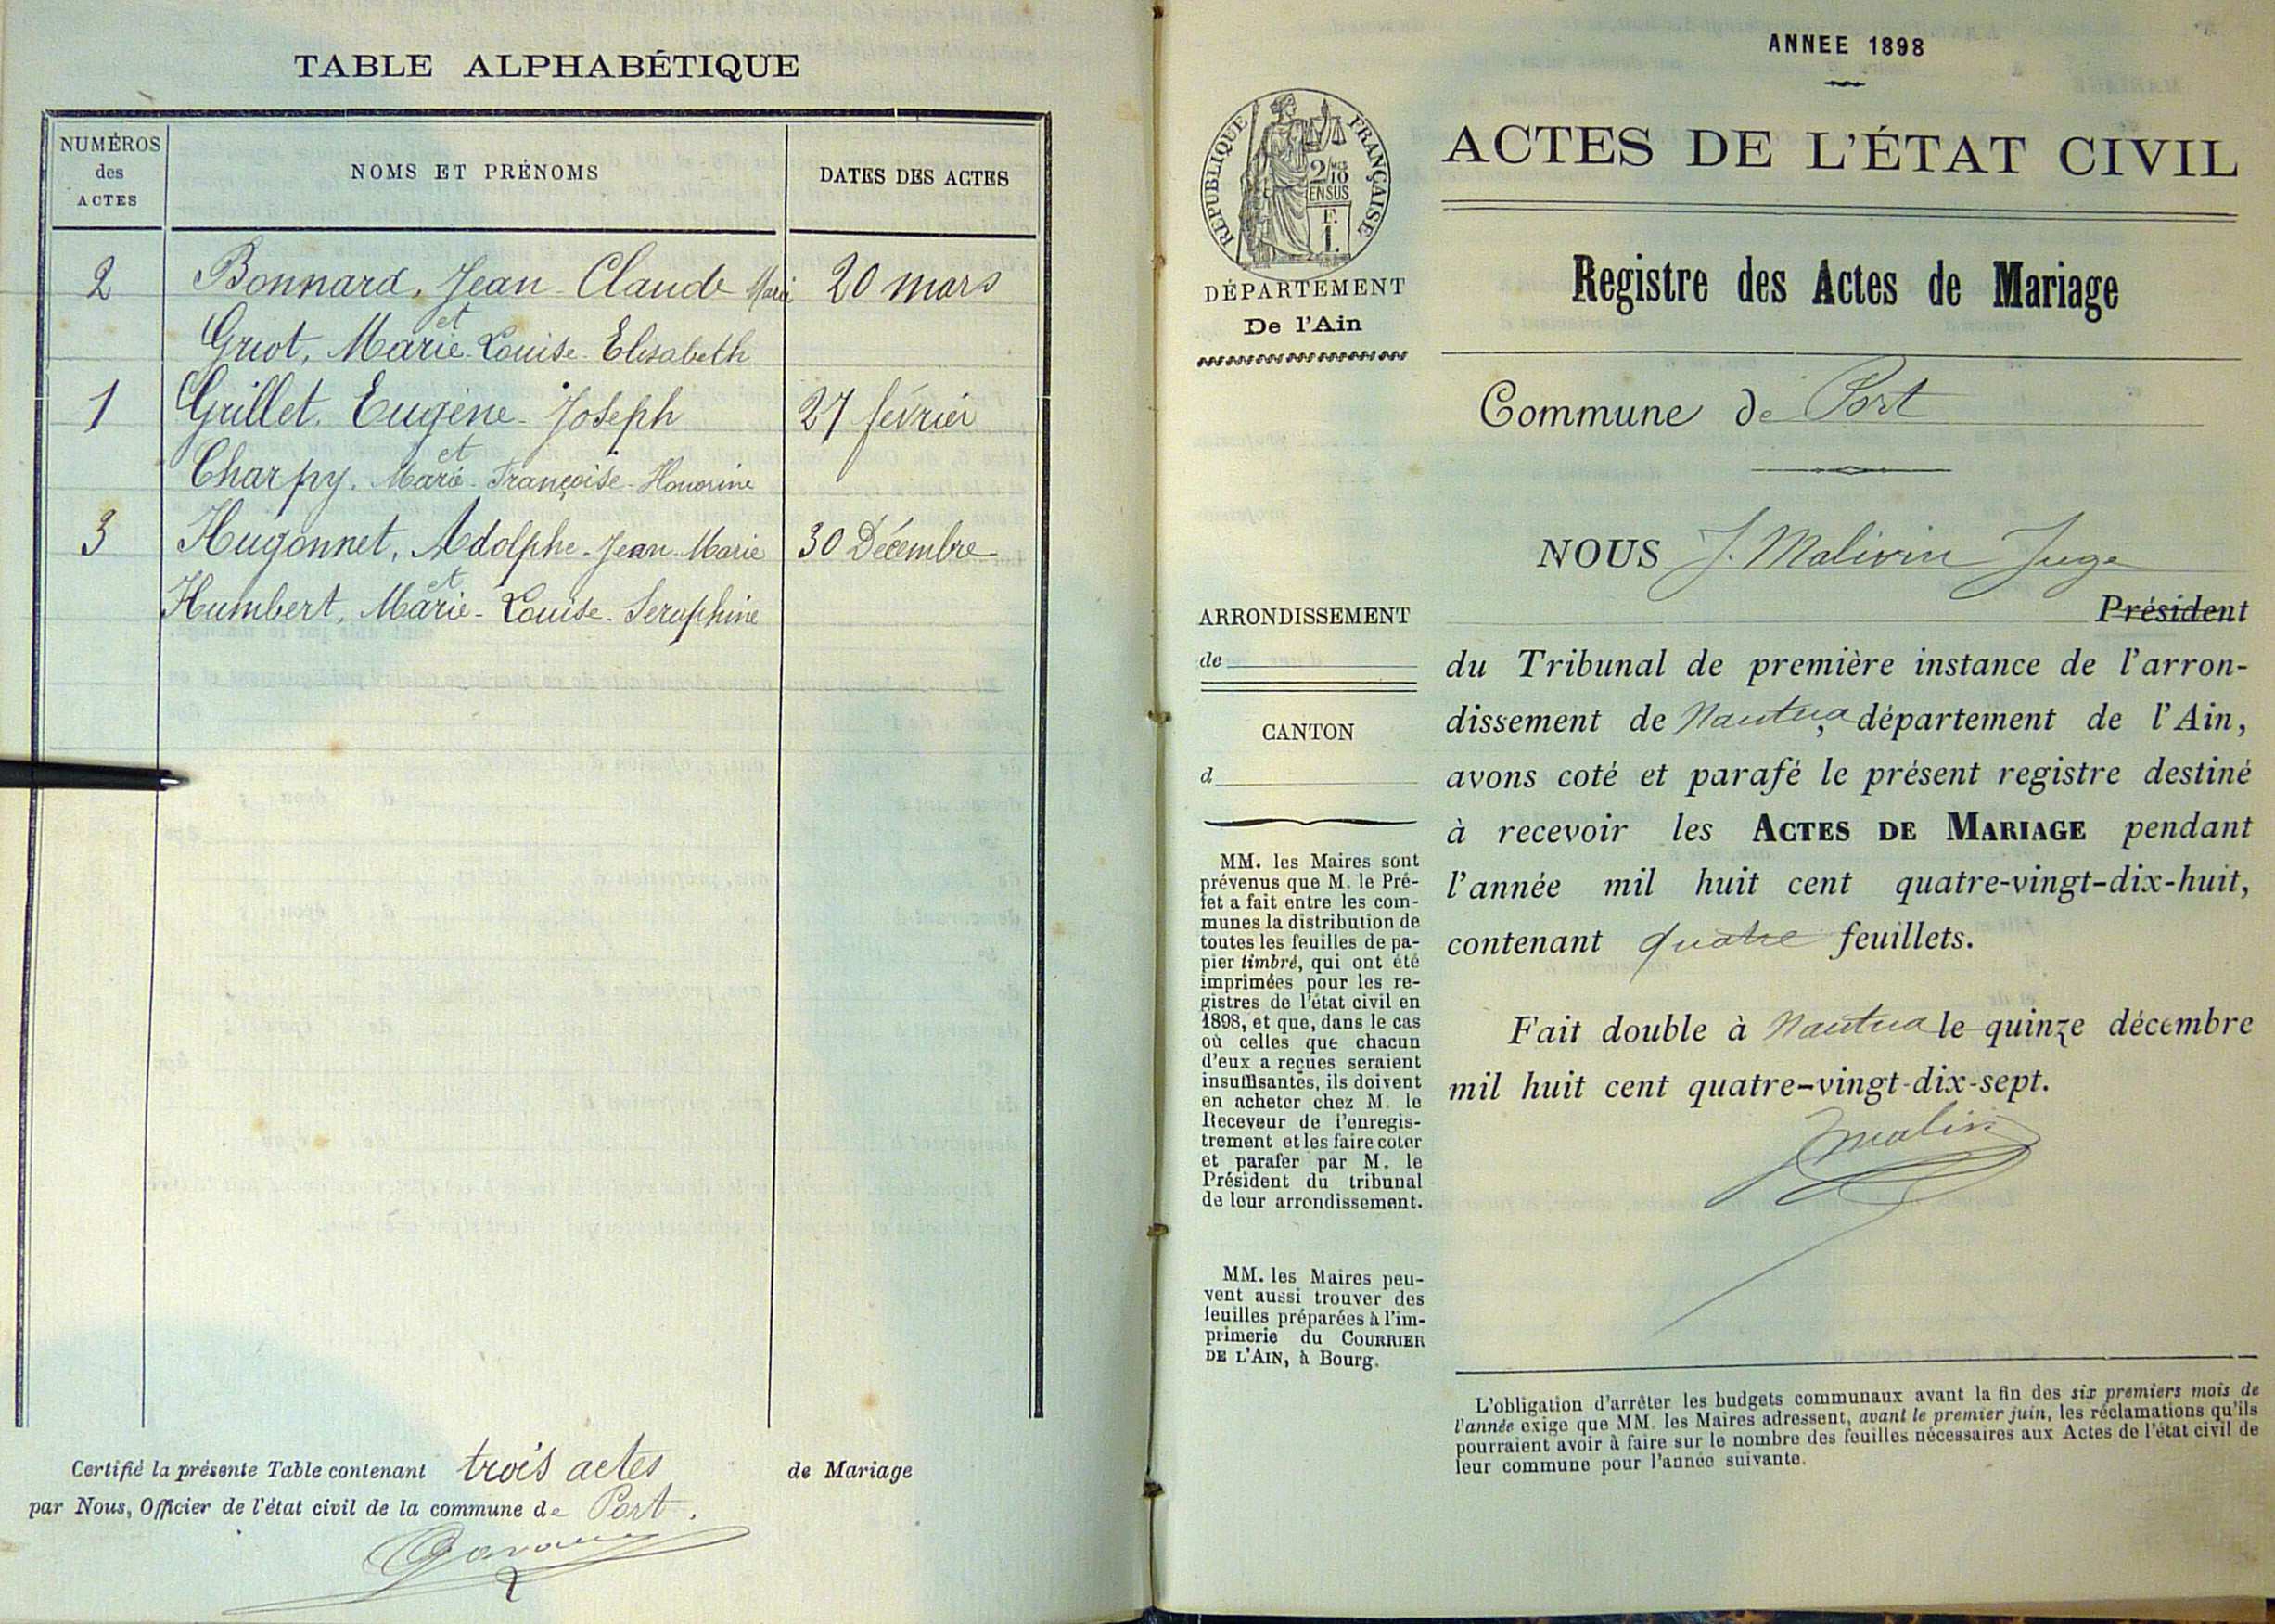 TABLE ALPHABÉTIQUE
NUMÉROS
des
ACTES
NOMS ET PRÉNOMS
DATES DES ACTES
2 Bonnard, Jean-Claude Marie 20 mars
et
Griot, Marie-Louise-Elisabeth
1 Grillet, Eugène-Joseph 27 février
et
Charpy, Marie-Françoise-Honorine
3 Hugonnet, Adolphe-Jean-Marie 30 Décembre
et
Humbert, Marie-Louise-Seraphine
Certifié la présente Table contenant trois actes de Mariage
par Nous, Officier de l'état civil de la commune de Port.
ANNEE 1898
RÉPUBLIQUE FRANÇAISE
2/10
EN SUS
F.
1.
DÉPARTEMENT
De l'Ain
ARRONDISSEMENT
de
CANTON
d
MM. les Maires sont
prévenus que M. le Pré-
fet a fait entre les com-
munes la distribution de
toutes les feuilles de pa-
pier timbré, qui ont été
imprimées pour les re-
gistres de l'état civil en
1898, et que, dans le cas
où celles que chacun
d'eux a reçues seraient
insuffisantes, ils doivent
en acheter chez M. le
Receveur de l'enregis-
trement et les faire coter
et parafer par M. le
Président du tribunal
de leur arrondissement.
MM. les Maires peu-
vent aussi trouver des
feuilles préparées à l'im-
primerie du COURRIER
DE L'AIN, à Bourg.
ACTES DE L'ÉTAT CIVIL
Registre des Actes de Mariage
Commune de Port
NOUS J. Malivin Juge
Président
du Tribunal de première instance de l'arron-
dissement de Nantua, département de l'Ain,
avons coté et parafé le présent registre destiné
à recevoir les ACTES DE MARIAGE pendant
l'année mil huit cent quatre-vingt-dix-huit,
contenant quatre feuillets.
Fait double à Nantua le quinze décembre
mil huit cent quatre-vingt-dix-sept.
L'obligation d'arrêter les budgets communaux avant la fin des six premiers mois de
l'année exige que MM. les Maires adressent, avant le premier juin, les réclamations qu'ils
pourraient avoir à faire sur le nombre des feuilles nécessaires aux Actes de l'état civil de
leur commune pour l'année suivante.